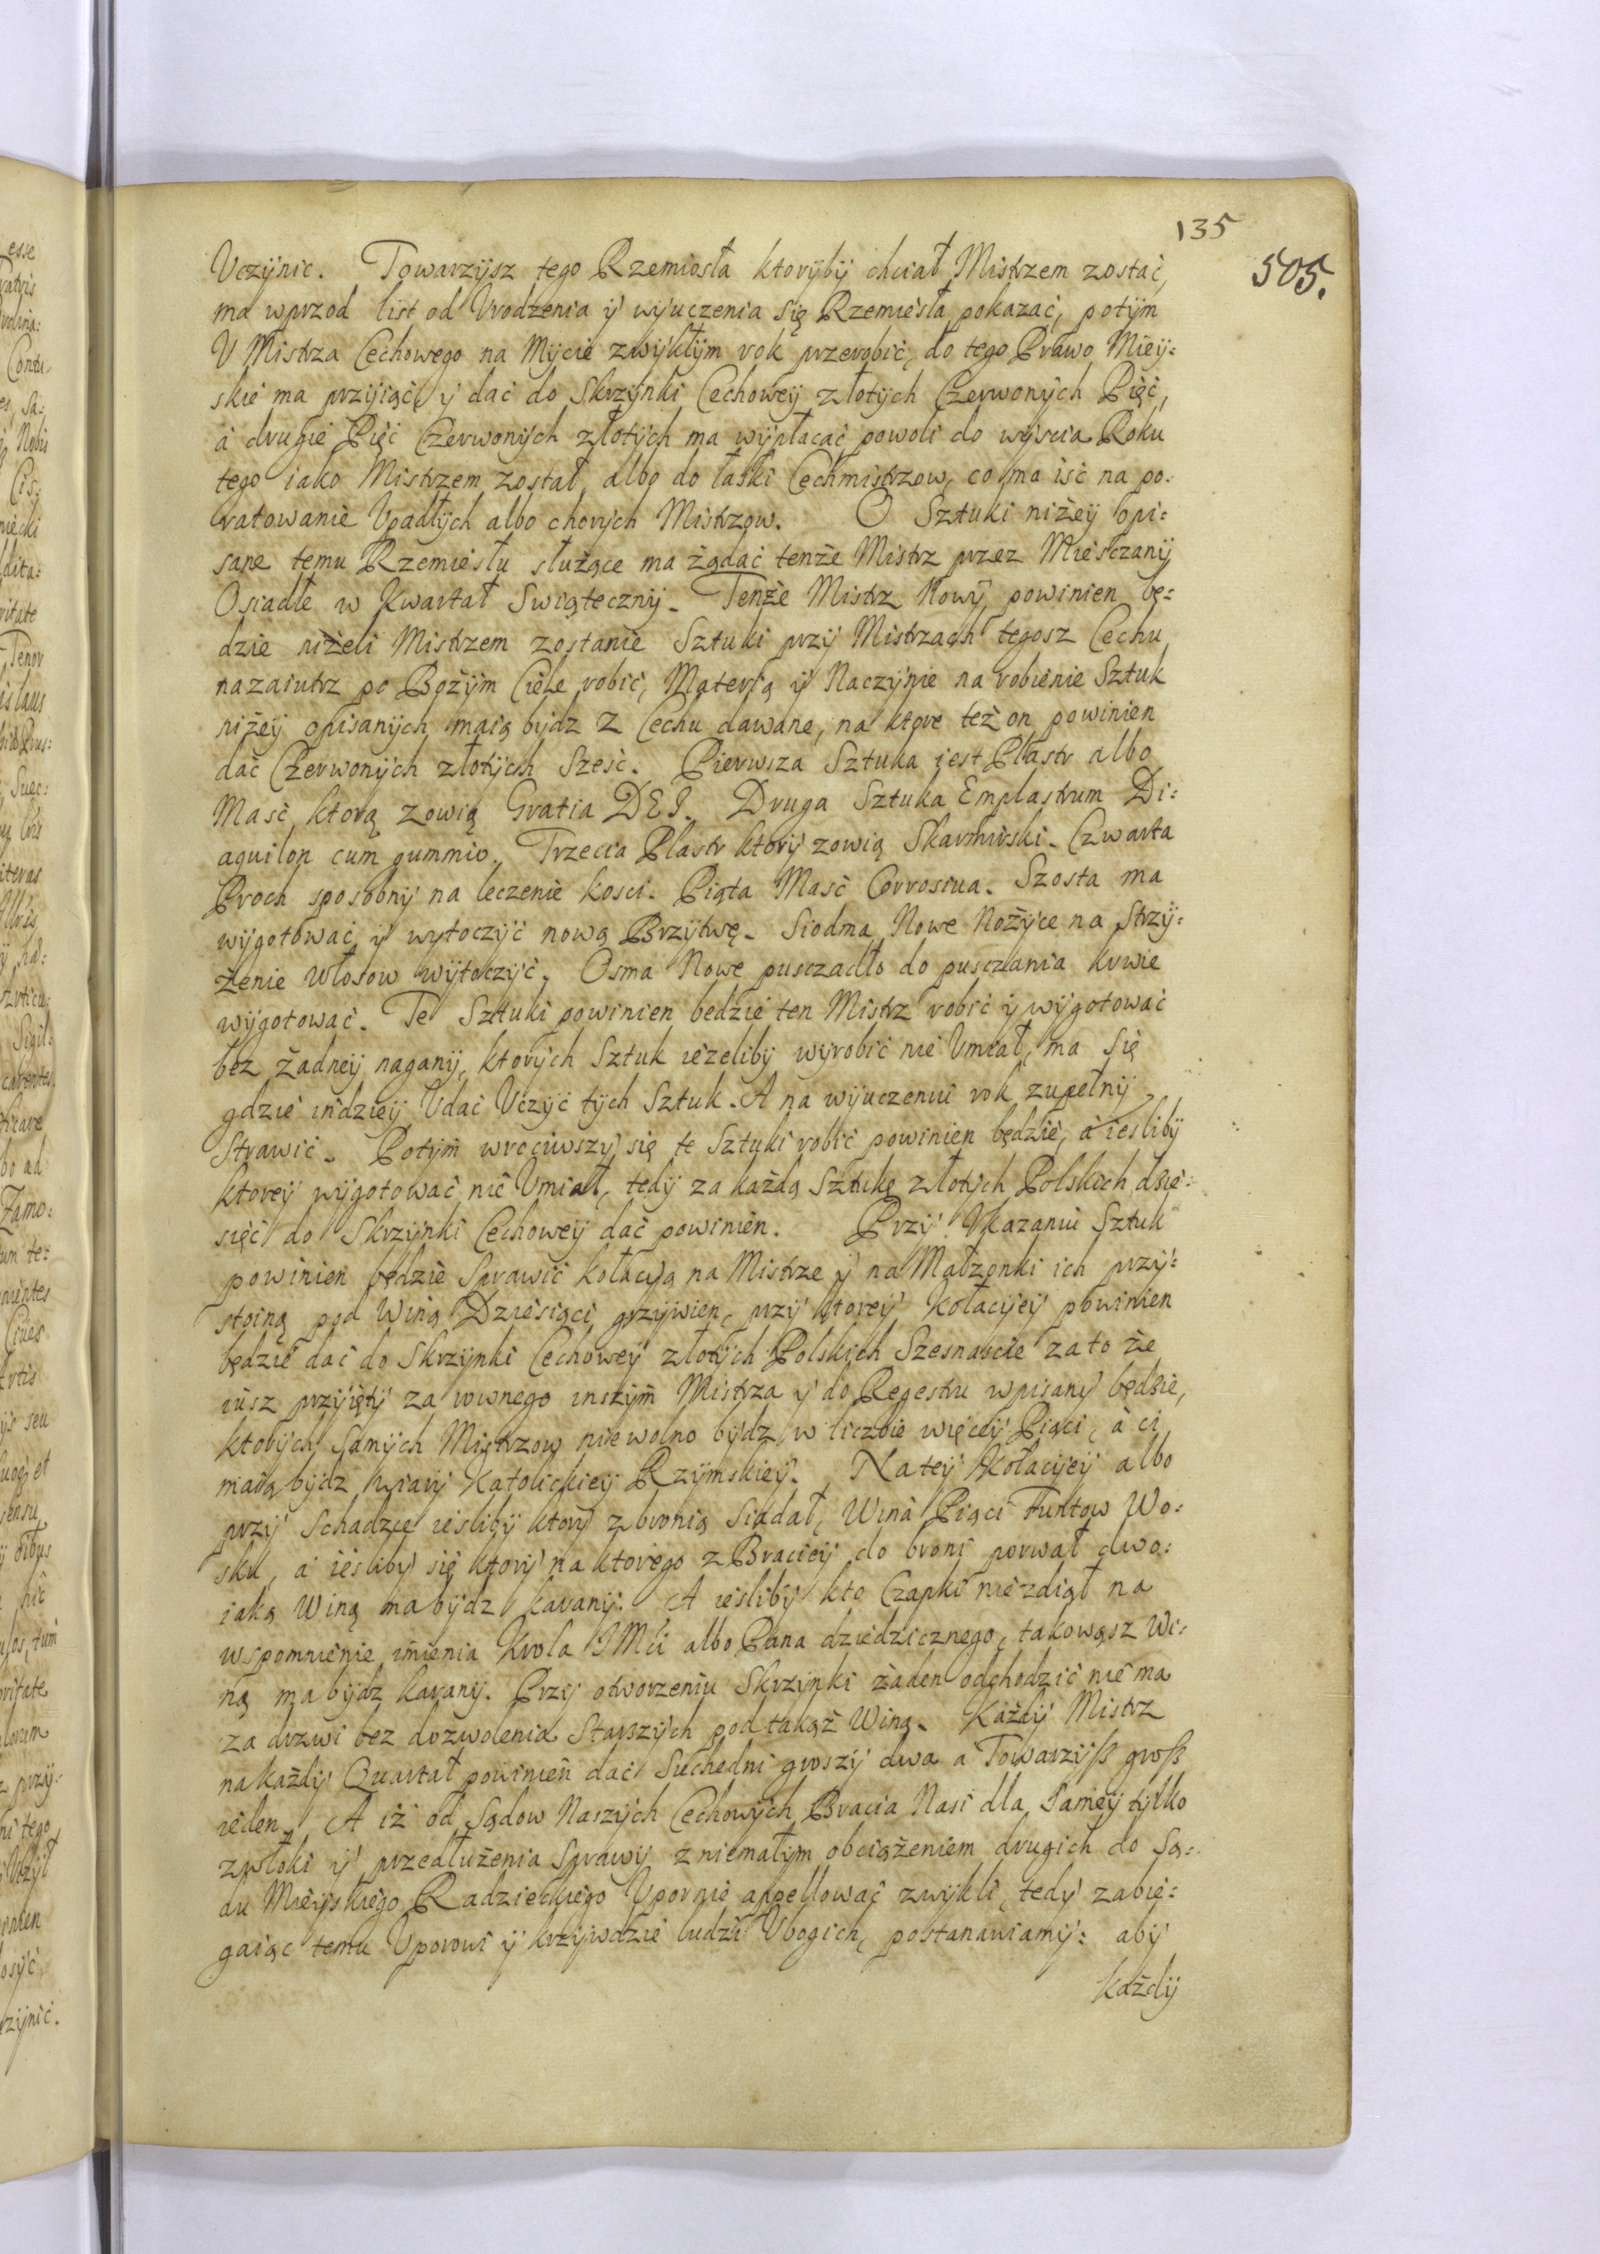 135
505.
Uczÿnic. Towarzÿsz tego Rzemiosła ktorÿbÿ chciał Mistrzem zostać,
ma wprzod list od Urodzenia ÿ wÿuczenia się Rzemiesła pokazać, potÿm
U Mistrza Cechowego na Mÿcie zwÿkłÿm rok przerobić, do tego Prawo Mieÿ:
skie ma przÿiąć, ÿ dać do Skrzÿnki Cechoweÿ złotÿch Czerwonÿch Pięć,
á drugie Pięć Czerwonÿch złotÿch ma wÿpłacać powoli do wÿscia Roku
tego iako Mistrzem został, albo do łaski Cechmistrzow, co ma iść na po:
ratowanie Upadłÿch albo chorÿch Mistrzow. O Sztuki niżeÿ opi:
sane temu Rzemiesłu służące ma żądać tenże Mistrz przez Miesczanÿ
Osiadłe w Kwartał Swiątecznÿ. Tenże Mistrz Nowÿ powinien bę:
dzie niżeli Mistrzem zostanie Sztuki przÿ Mistrzach tegosz Cechu
nazaiutrz po Bożÿm Ciele robić, Materią ÿ Naczÿnie na robienie Sztuk
niżeÿ opisanÿch maią bÿdz z Cechu dawane, na ktore też on powinien
dać Czerwonÿch złotÿch Sześć. Pierwsza Sztuka jest Plastr albo
Maść ktorą zowią Gratia DEI. Druga Sztuka Emplastrum Di:
aquilon cum gummio. Trzecia Plastr ktorÿ zowią Skarmirski. Czwarta
Proch sposobnÿ na leczenie kosci. Piąta Maść Corrosiua. Szosta ma
wÿgotować ÿ wÿtoczÿć nową Brzÿtwę. Siodma Nowe Nożÿce na Strzÿ:
żenie Włosow wÿtoczÿć. Osma Nowe pusczadło do pusczania krwie
wÿgotować. Te Sztuki powinien bedzie ten Mistrz robić ÿ wÿgotować
bez żadneÿ naganÿ, ktorÿch Sztuk ieżelibÿ wÿrobić nie Umiał, ma się
gdzie indzieÿ Udać Uczÿć tÿch Sztuk. A na wÿuczeniu rok zupełnÿ
Strawić. Potÿm wrociwszÿ się te Sztuki robić powinien będzie, á ieslibÿ
ktoreÿ wÿgotować nie Umiał, tedÿ za każdą Sztukę złotÿch Polskich dzie:
sięć do Skrzÿnki Cechoweÿ dać powinien. Przÿ Ukazaniu Sztuk
powinien będzie Sprawić kołacÿą na Mistrze ÿ na Małzonki ich przÿ:
stoiną pod Winą Dziesiąci grzÿwien, przÿ ktoreÿ kołacÿeÿ powinien
będzie dać do Skrzÿnki Cechoweÿ złotÿch Polskich Szesnascie za to że
iusz przÿiętÿ za rownego inszÿm Mistrza ÿ do Regestru wpisanÿ będzie,
ktorÿch samÿch Mistrzow niewolno bÿdz w liczbie więceÿ Piąci, á ci
maią bÿdz wiarÿ Katolickieÿ Rzÿmskieÿ. Na teÿ kołacÿeÿ albo
przÿ Schadzce ieslibÿ ktorÿ z bronią Siadał, Wina Piąci Funtow Wo:
sku, a ieslibÿ się ktorÿ na ktorego z Bracieÿ do broni porwał dwo:
iaką Winą ma bÿdz karanÿ. A ieslibÿ kto Czapki nie zdiął na
wspomnienie imienia Krola JMci albo Pana dziedzicznego, takowąsz Wi:
ną ma bÿdz karanÿ. Przÿ otworzeniu Skrzÿnki żaden odchodzić nie ma
za drzwi bez dozwolenia Starszÿch pod takąż Winą. Każdÿ Mistrz
na każdÿ Quartał powinien dać Suchedni groszÿ dwa a Towarzÿß groß
ieden. A iż od Sądow Naszÿch Cechowÿch Bracia Nasi dla Sameÿ tÿlko
zwłoki ÿ przedłużenia Sprawÿ z niemałÿm obciążeniem drugich do Są:
du Mieÿskiego Radzieckiego Upornie appellować zwÿkli, tedÿ zabie:
gaiąc temu Uporowi ÿ krzÿwdzie ludzi Ubogich, postanawiamÿ: abÿ
każdÿ